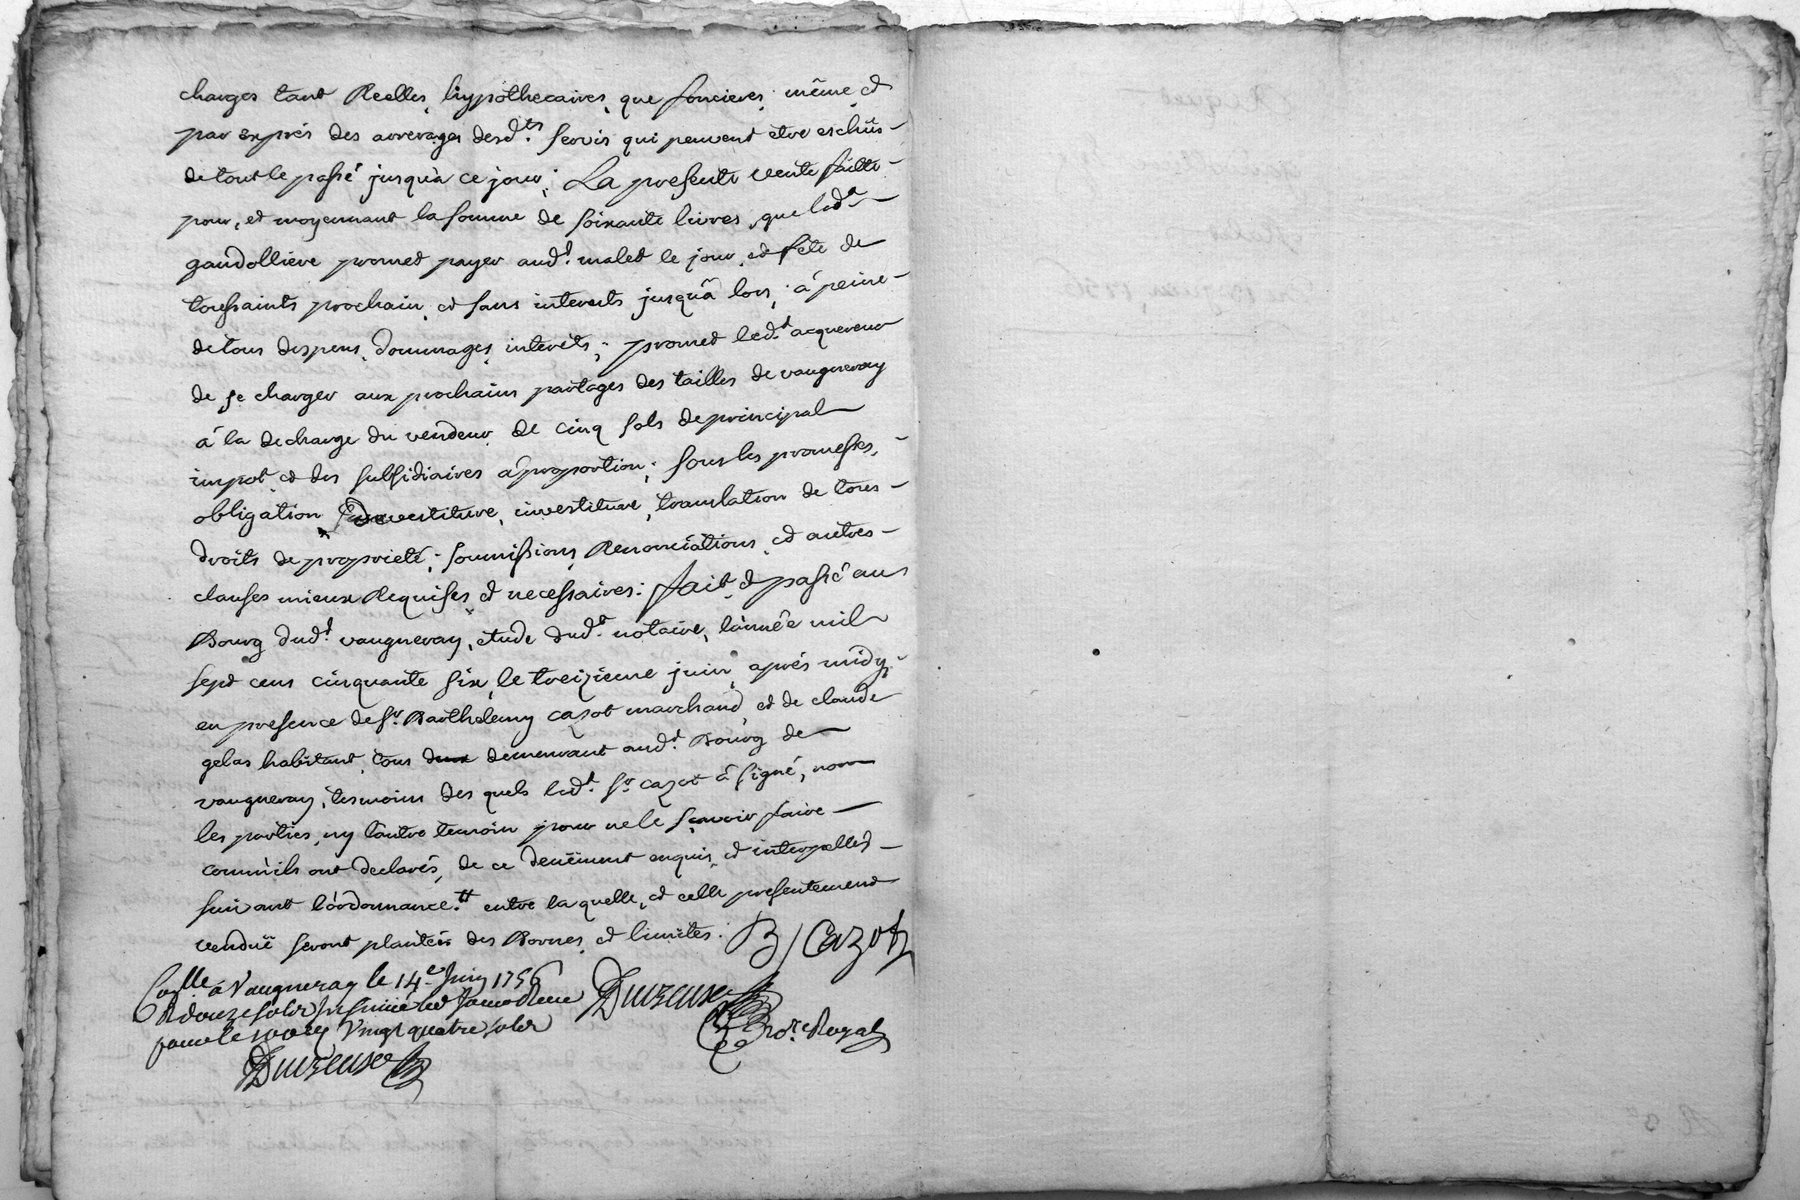 charges tant Reelles, hypothecaires, que foncieres, même et
par exprés des arrerages desd.ts servis qui peuvent etre eschûs
de tout le passé jusqu'à ce jour; La presente vente faitte
pour, et moyennant la somme de soixante livres, que led.t
gaudolliere promet payer aud.t malet le jour, et fête de
toussaints prochain, et sans interets jusqu'â lors, â peine
de tous despens, dommages, interêts; promet led.t acquereur
de se charger aux prochains partages des tailles de vaugneray
â la decharge du vendeur de cinq sols de principal
impot et des subsidiaires â proportion; sous les promesses,
obligation, Devestiture, investiture, translation de tous
droits de proprieté; soumissions, Renonciations, et autres
clauses mieux Requises, et necessaires: fait, et passé au
Bourg dud.t vaugneray, etude dud.t notaire, l'année mil
sept cens cinquante six, le treizieme juin, aprés midy,
en presence de s.r Barthelemy cazot marchand, et de claude
gelas habitant, tous deux demeurant aud.t Bourg de
vaugneray, tesmoins des quels led.t s.r cazot â signé, non
les parties, ny l'autre temoin pour ne le sçavoir faire
comm'ils ont declarés, de ce deuëment enquis, et interpellés
suivant l'ordonnance.tt entre la quelle, et celle presentement
venduë seront plantées des Bornes, et limites.
B / Cazot
Conllé â Vaugneray le 14.e juin 1756
R douze sols
pour le vingt quatre sols
no.re Royal